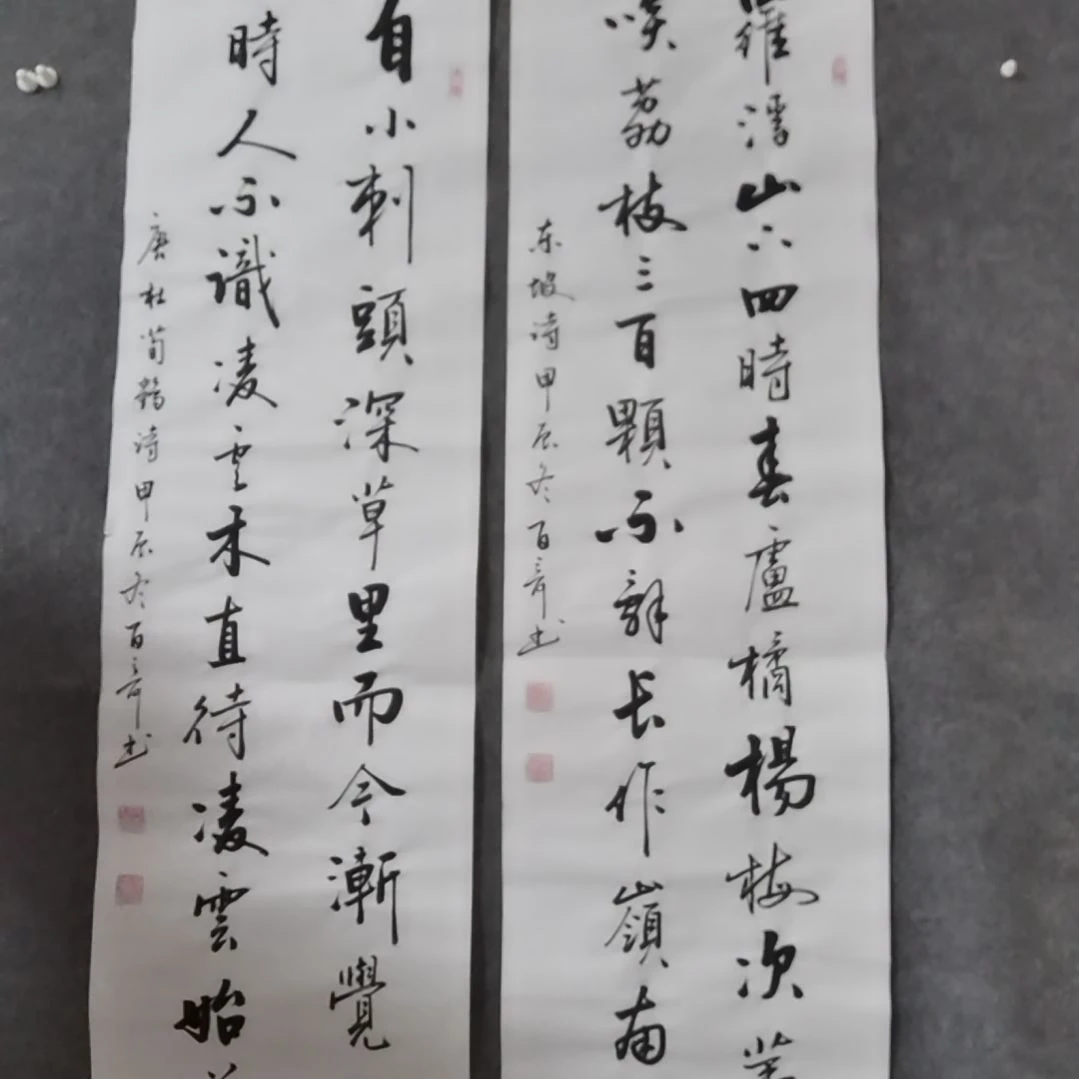 羅浮山下四時春盧橘楊梅次
啖荔枝三百顆不辭长作嶺南
东坡诗甲辰冬百书
自小刺頭深草里而今漸覺
時人不識凌云木直待凌雲始
唐杜荀鶴诗甲辰冬百书